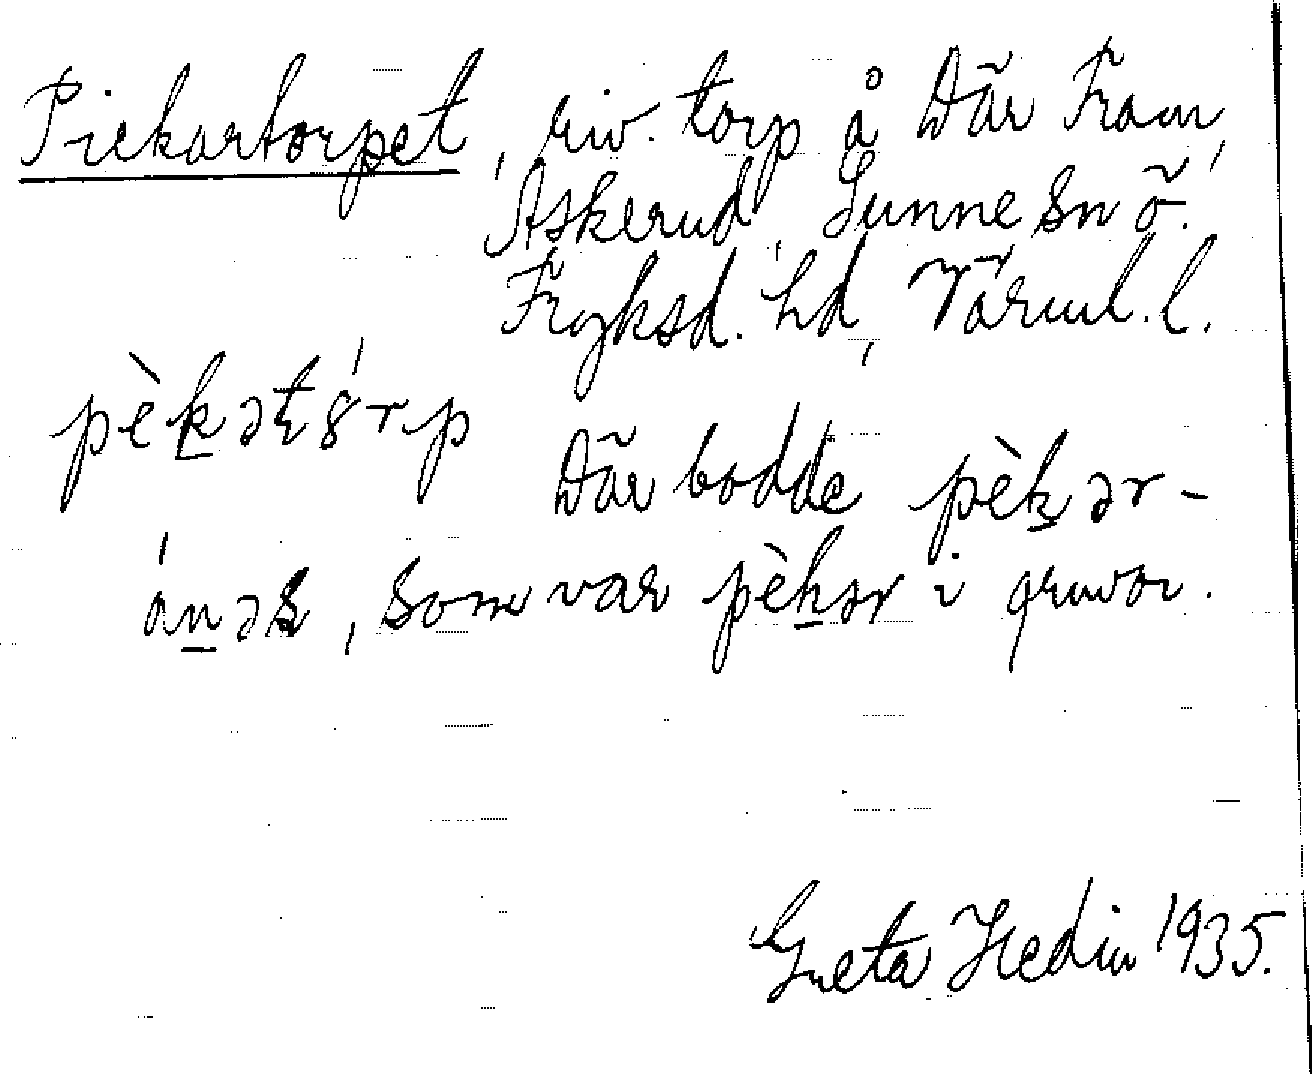 Pickartorpet, riv. torp å Där Fram,
Askerud, Sunne sn ö.
Fryksd. hd, Värml. l.
pèk̠ət8́rp
Där bodde pèk̠ər-
án̠əs, som var pèk̠ər i gruvor.
Greta Hedin 1935.